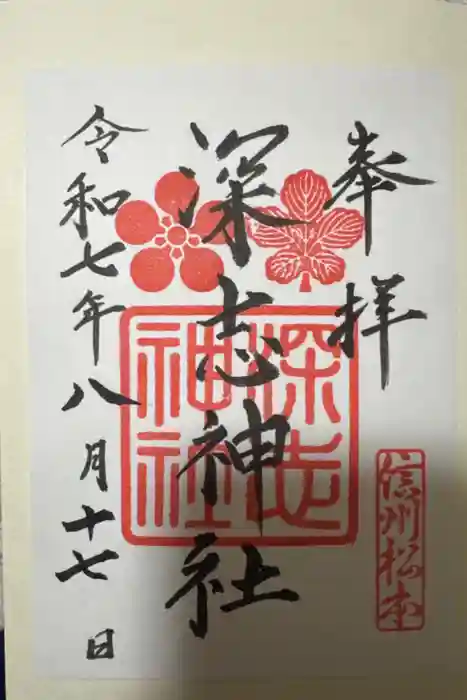 奉拝
深志神社
深志
神社
令和七年八月十七日
信州松本